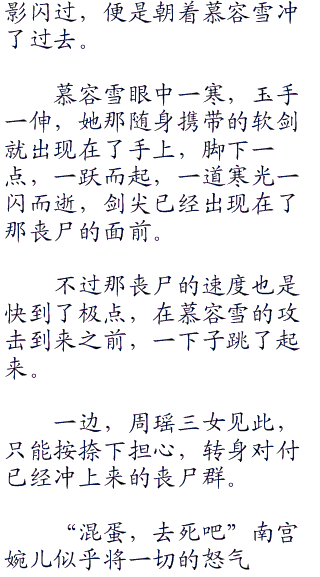 影闪过，便是朝着慕容雪冲
了过去。
慕容雪眼中一寒，玉手
一伸，她那随身携带的软剑
就出现在了手上，脚下一
点，一跃而起，一道寒光一
闪而逝，剑尖已经出现在了
那丧尸的面前。
不过那丧尸的速度也是
快到了极点，在慕容雪的攻
击到来之前，一下子跳了起
来。
一边，周瑶三女见此，
只能按捺下担心，转身对付
已经冲上来的丧尸群。
“混蛋，去死吧”南宫
婉儿似乎将一切的怒气